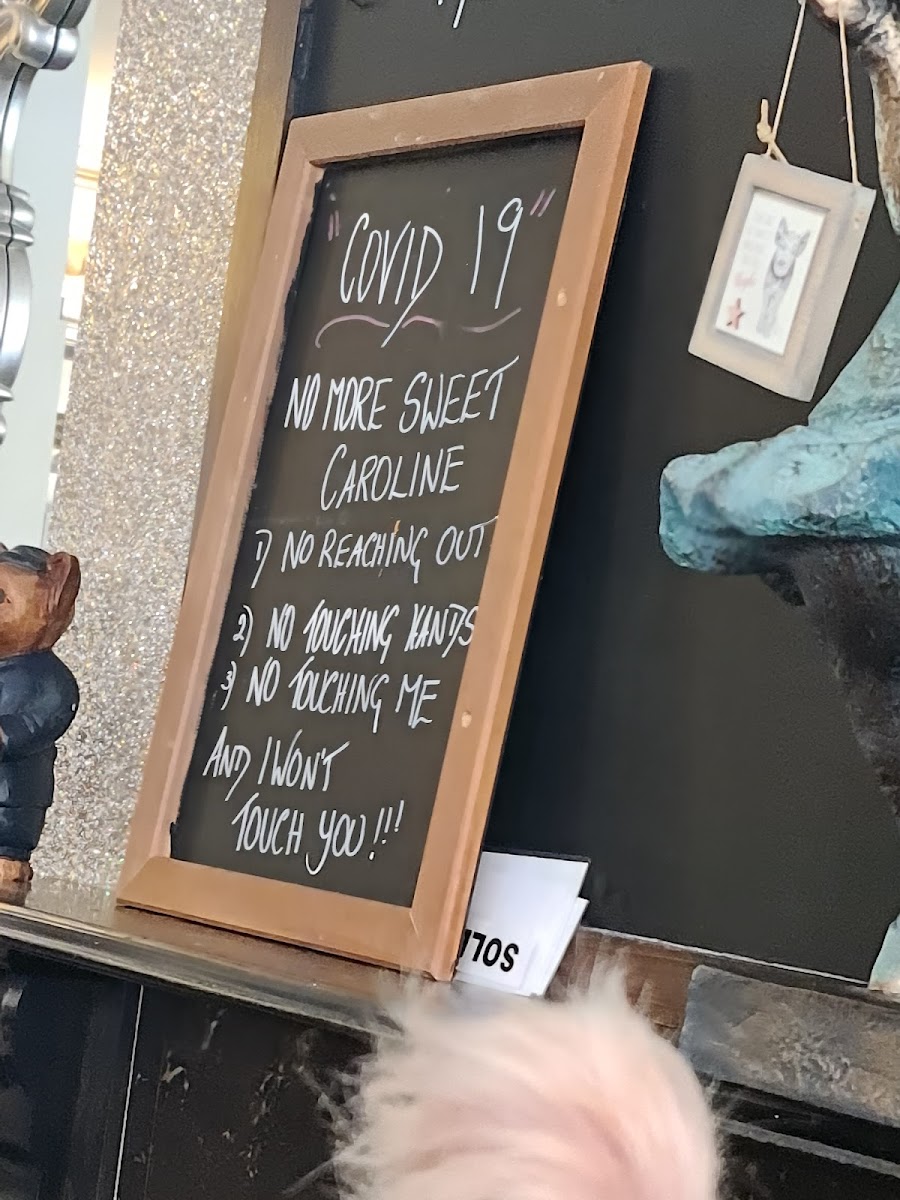 "COVID 19"
NO MORE SWEET
CAROLINE
1) NO REACHING OUT
2) NO TOUCHING HANDS
3) NO TOUCHING ME
AND I WON'T
TOUCH YOU!!!